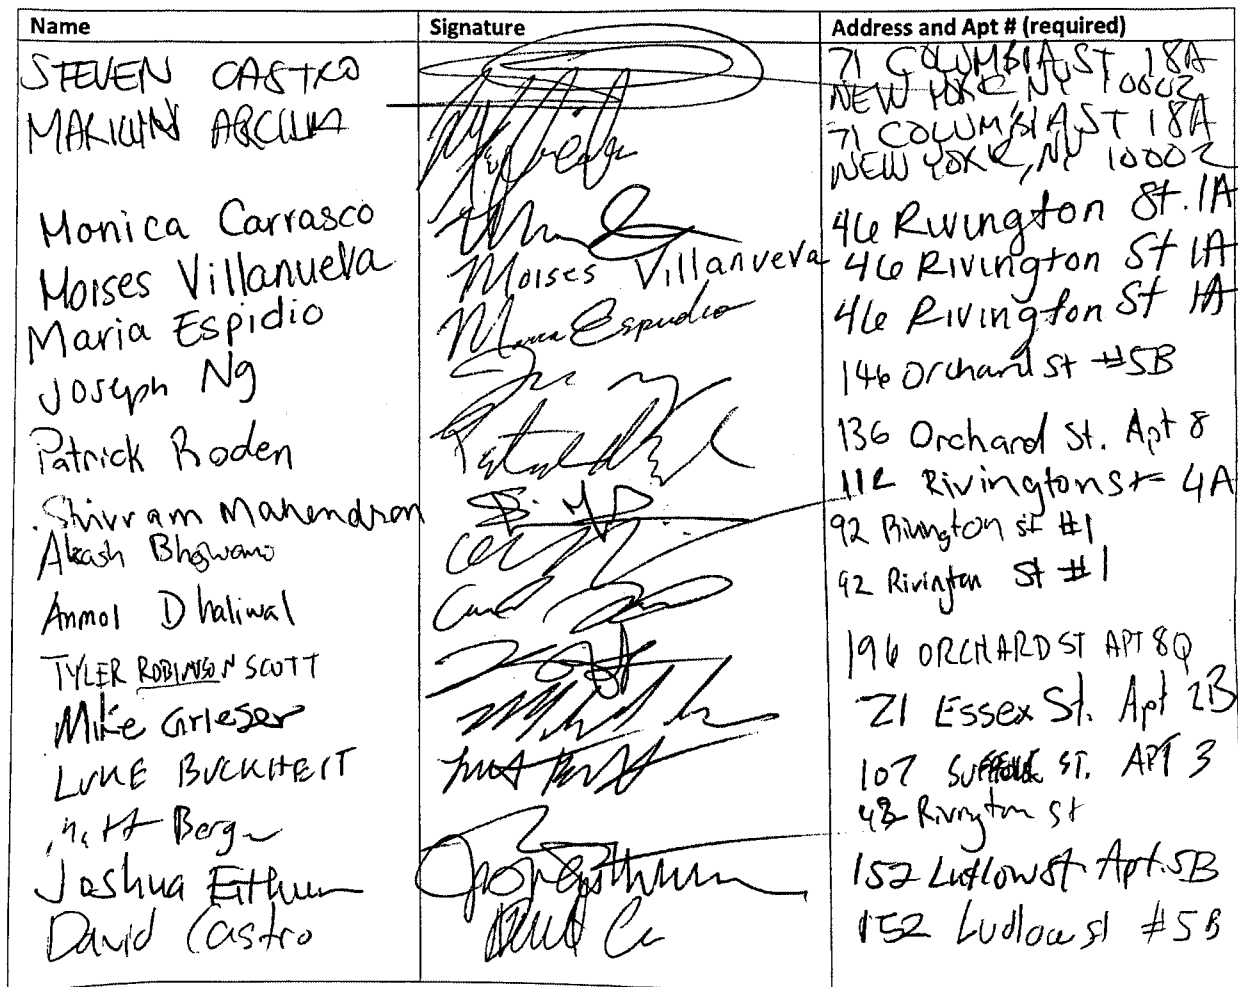 Name Signature Address and Apt # (required)
STEVEN CASTRO 71 COLUMBIA ST 18A
NEW YORK NY 10002
MARILYN 71 COLUMBIA ST 18A
NEW YORK, NY 10002
Monica Carrasco 46 Rivington St. 1A
Moises Villanueva Moises Villanueva 46 Rivington St 1A
Maria Espidio Maria Espidio 46 Rivington St 1A
Joseph Ng 146 Orchard St #5B
Patrick Roden 136 Orchard St. Apt 8
Shivram Mahendran 112 Rivington St 4A
Akash Bhojwani 92 Rivington St #1
Anmol Dhaliwal 92 Rivington St #1
TYLER ROBINSON SCOTT 196 ORCHARD ST APT 8Q
Mike Grieser 21 Essex St. Apt 2B
LUKE BUCKHEIT 107 SUFFOLK ST. APT 3
Rivington St
Joshua 152 Ludlow St. Apt. 5B
David Castro 152 Ludlow st #5B